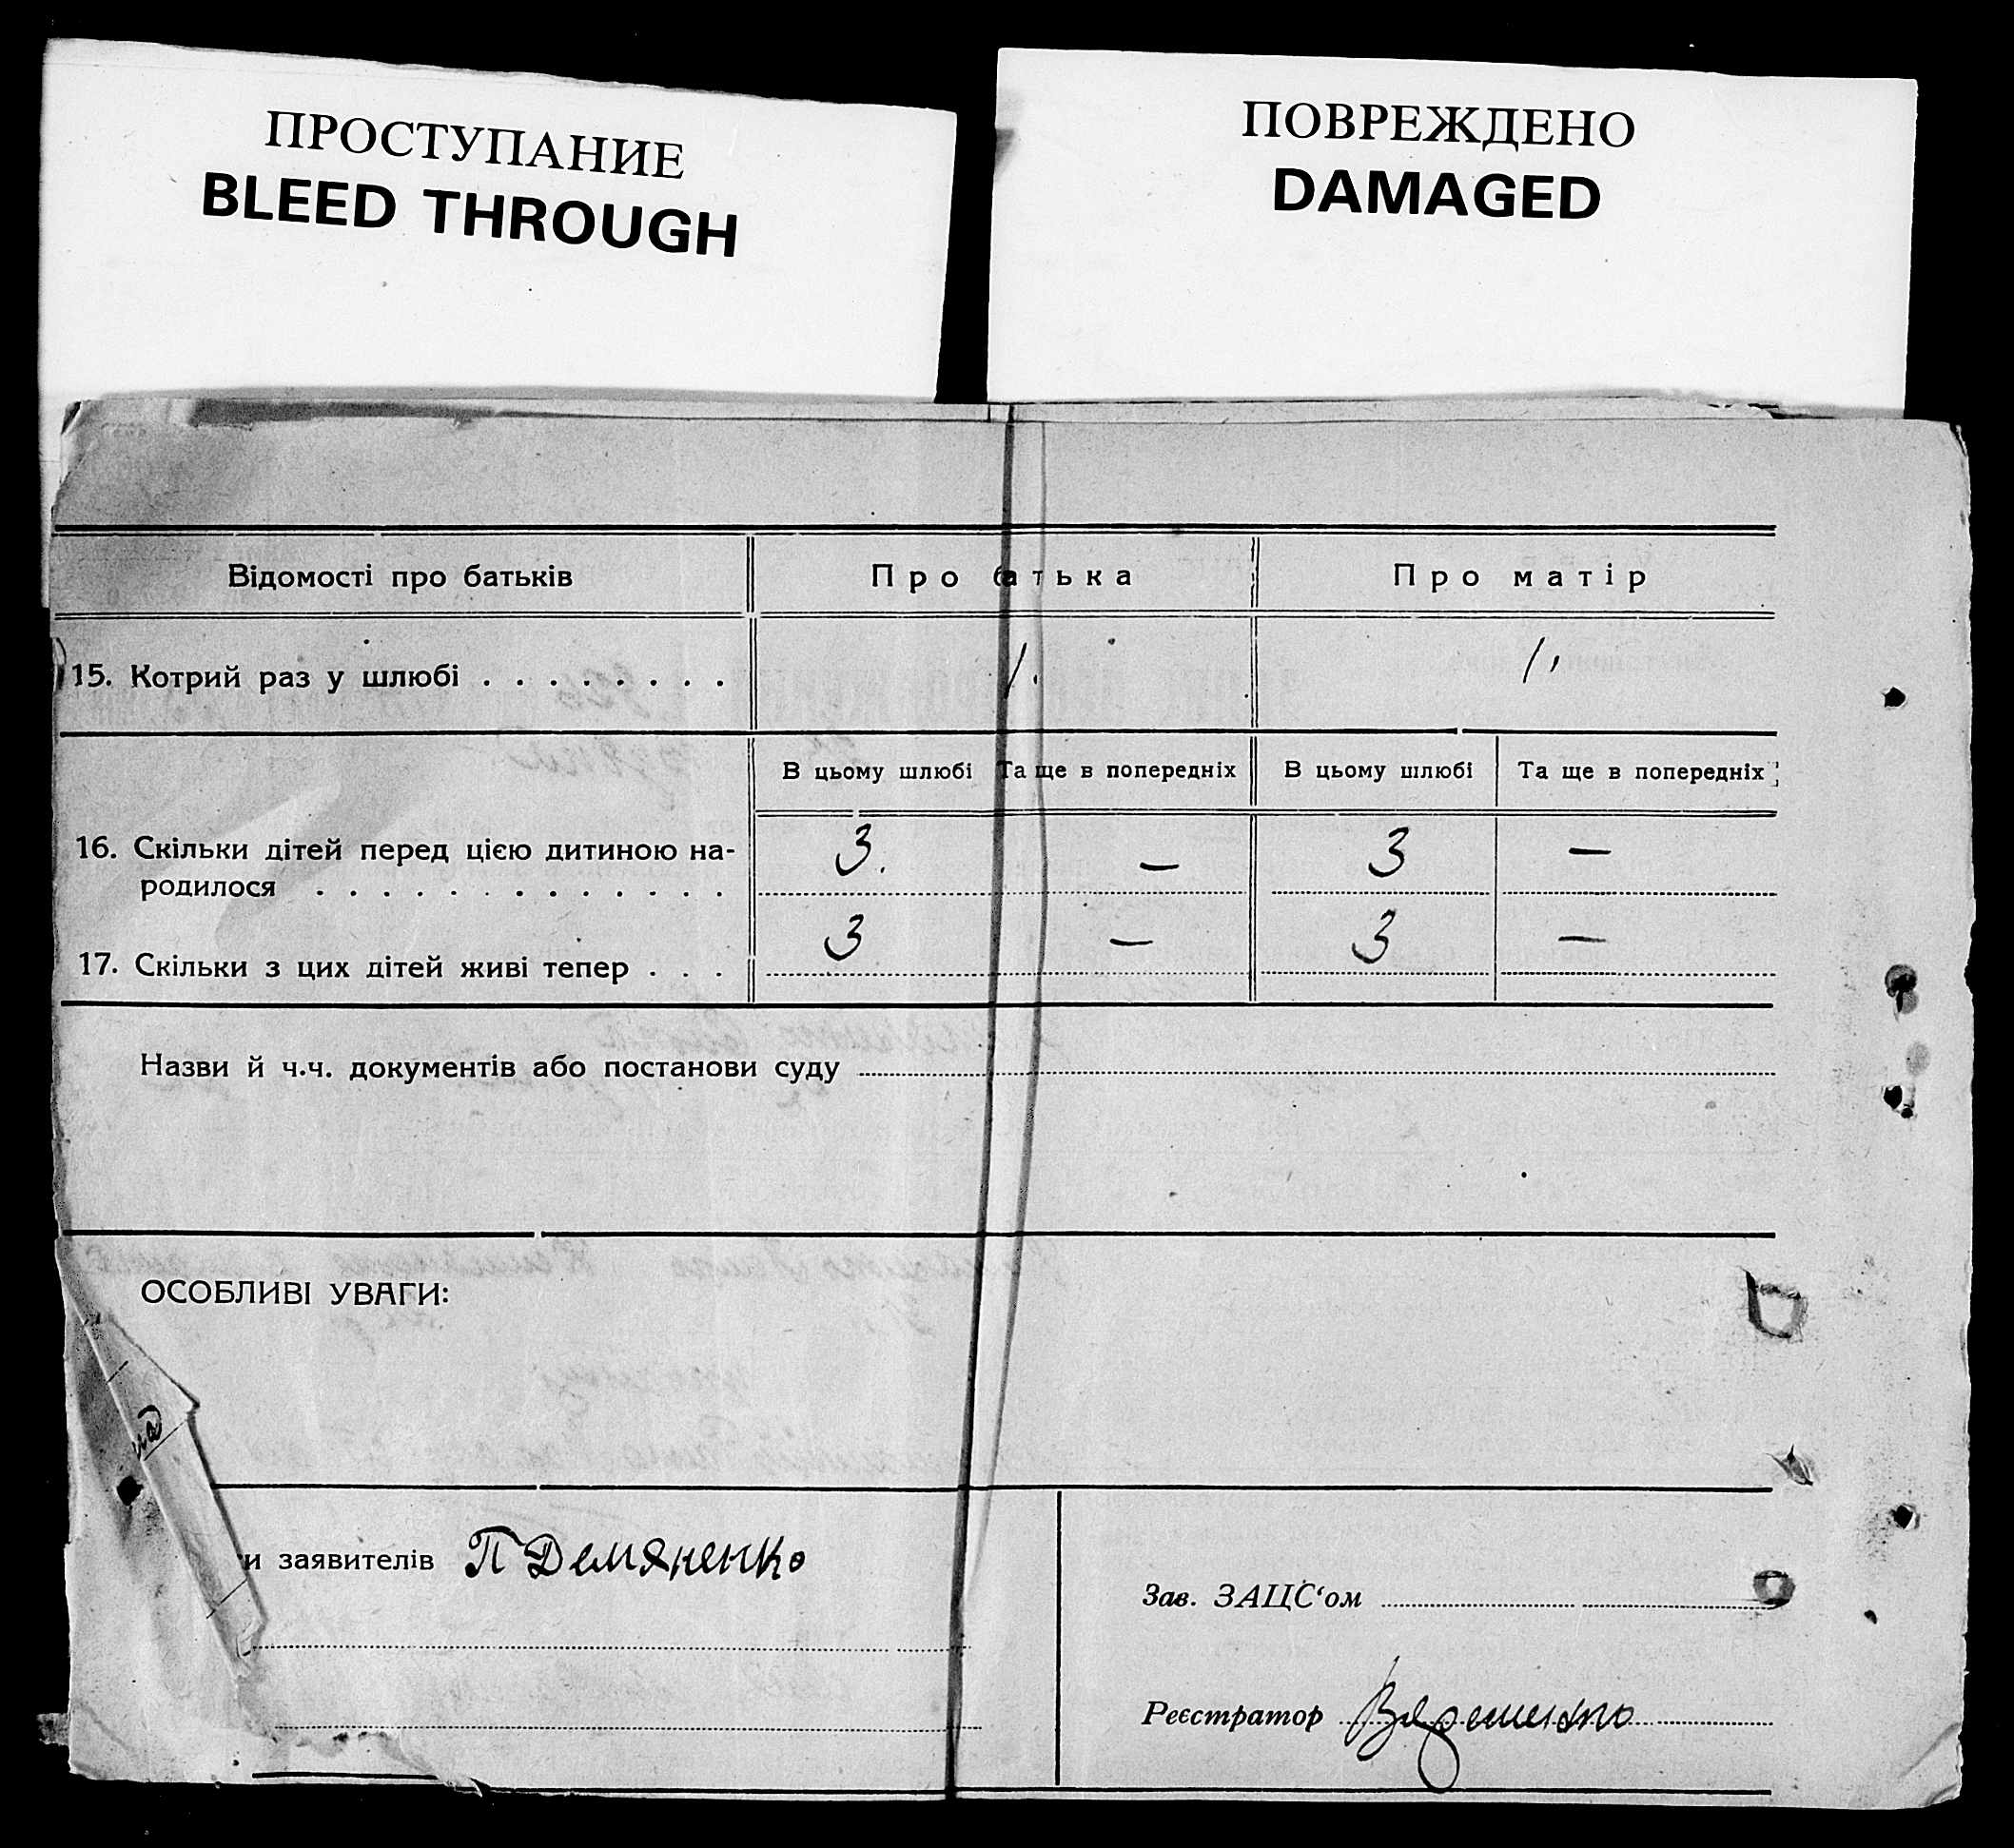 ПРОСТУПАНИЕ
BLEED THROUGH
ПОВРЕЖДЕНО
DAMAGED
Відомості про батьків Про батька Про матір
15. Котрий раз у шлюбі . . . . . . . . 1. 1.
В цьому шлюбі Та ще в попередніх В цьому шлюбі Та ще в попередніх
16. Скільки дітей перед цією дитиною на-
родилося . . . . . . . . . . . . . 3. — 3 —
17. Скільки з цих дітей живі тепер . . . 3 — 3 —
Назви й ч.ч. документів або постанови суду
ОСОБЛИВІ УВАГИ:
и заявителів П Демяненко
Зав. ЗАЦС‘ом
Реєстратор